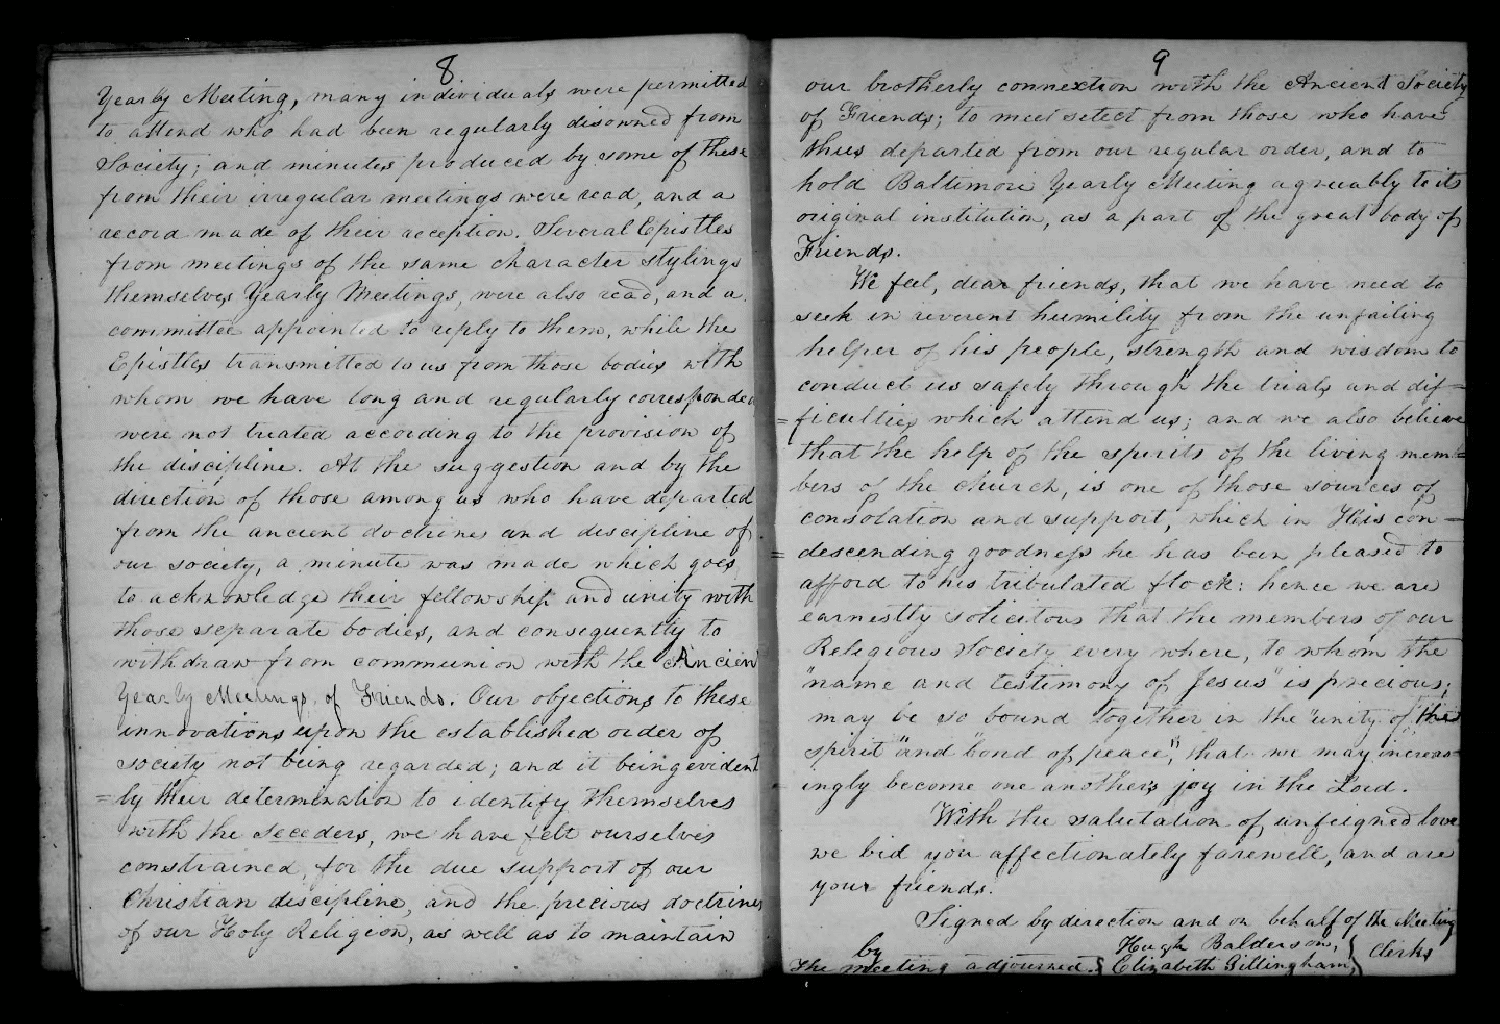 8
Yearly Meeting, many individuals were permitted
to attend who had been regularly disowned from
Society; and minutes produced by some of these
from their irregular meetings were read, and a
record made of their reception. Several Epistles
from meetings of the same character stylings
themselves Yearly Meetings, were also read, and a
committee appointed to reply to them, while the
Epistles transmitted to us from those bodies with
whom we have long and regularly corresponded
were not treated according to the provision of
the discipline. At the suggestion and by the
direction of those among us who have departed
from the ancient doctrines and discipline of
our society, a minute was made which goes
to acknowledge their fellowship and unity with
those separate bodies, and consequently to
withdraw from communion with the Ancien
Yearly Meetings of Friends. Our objections to these
innovations upon the established order of
society not being regarded; and it being evident
= by their determination to identify themselves
with the seceders, we have felt ourselves
constrained, for the due support of our
Christian discipline, and the precious doctrines
of our Holy Religeon, as well as to maintain
9
our brotherly connexion with the Ancient Society
of Friends; to meet select from those who have
thus departed from our regular order, and to
hold Baltimore Yearly Meeting agreeably to its
original institution, as a part of the great body of
Friends.
We feel, dear friends, that we have need to
seek in reverent humility from the unfailing
helper of his people, strength and wisdom to
conduct us safely through the trials and dif=
=ficulties which attend us; and we also believe
that the help of the spirits of the living mem=
bers of the church, is one of those sources of
consolation and support, which in His con=
=descending goodness he has been pleased to
afford to his tribulated flock: hence we are
earnestly solicitous that the members of our
Relegious Society every where, to whom the
"name and testimony of Jesus" is precious;
may be so bound together in the "unity of the
spirit "and "bond of peace", that we may increas=
ingly become one anothers joy in the Lord.
With the salutation of unfeigned love
we bid you affectionately farewell, and are
your friends.
Signed by direction and on behalf of the Meeting
by Hugh Balderson, } Clerks
The meeting adjourned. } Elizabeth Gillingham, }